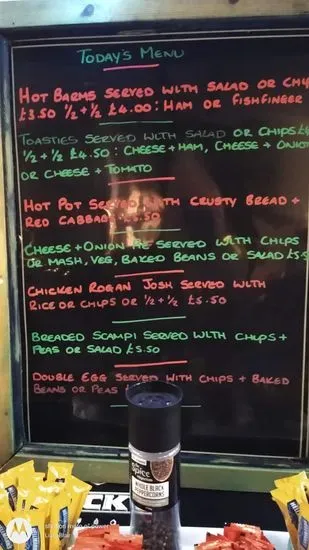 TODAY'S MENU
HOT BARMS SERVED WITH SALAD OR CHI
£3.50 1/2 + 1/2 £4.00: HAM OR FISHFINGER
TOASTIES SERVED WITH SALAD OR CHIPS £4
1/2 + 1/2 £4.50: CHEESE + HAM, CHEESE + ONION
OR CHEESE + TOMATO
HOT POT SERVED WITH CRUSTY BREAD +
RED CABBAGE £5.50
CHEESE + ONION PIE SERVED WITH CHIPS
OR MASH, VEG, BAKED BEANS OR SALAD £5.5
CHICKEN ROGAN JOSH SERVED WITH
RICE OR CHIPS OR 1/2 + 1/2 £5.50
BREADED SCAMPI SERVED WITH CHIPS +
PEAS OR SALAD £5.50
DOUBLE EGG SERVED WITH CHIPS + BAKED
BEANS OR PEAS
spice
WHOLE BLACK
PEPPERCORNS
CK